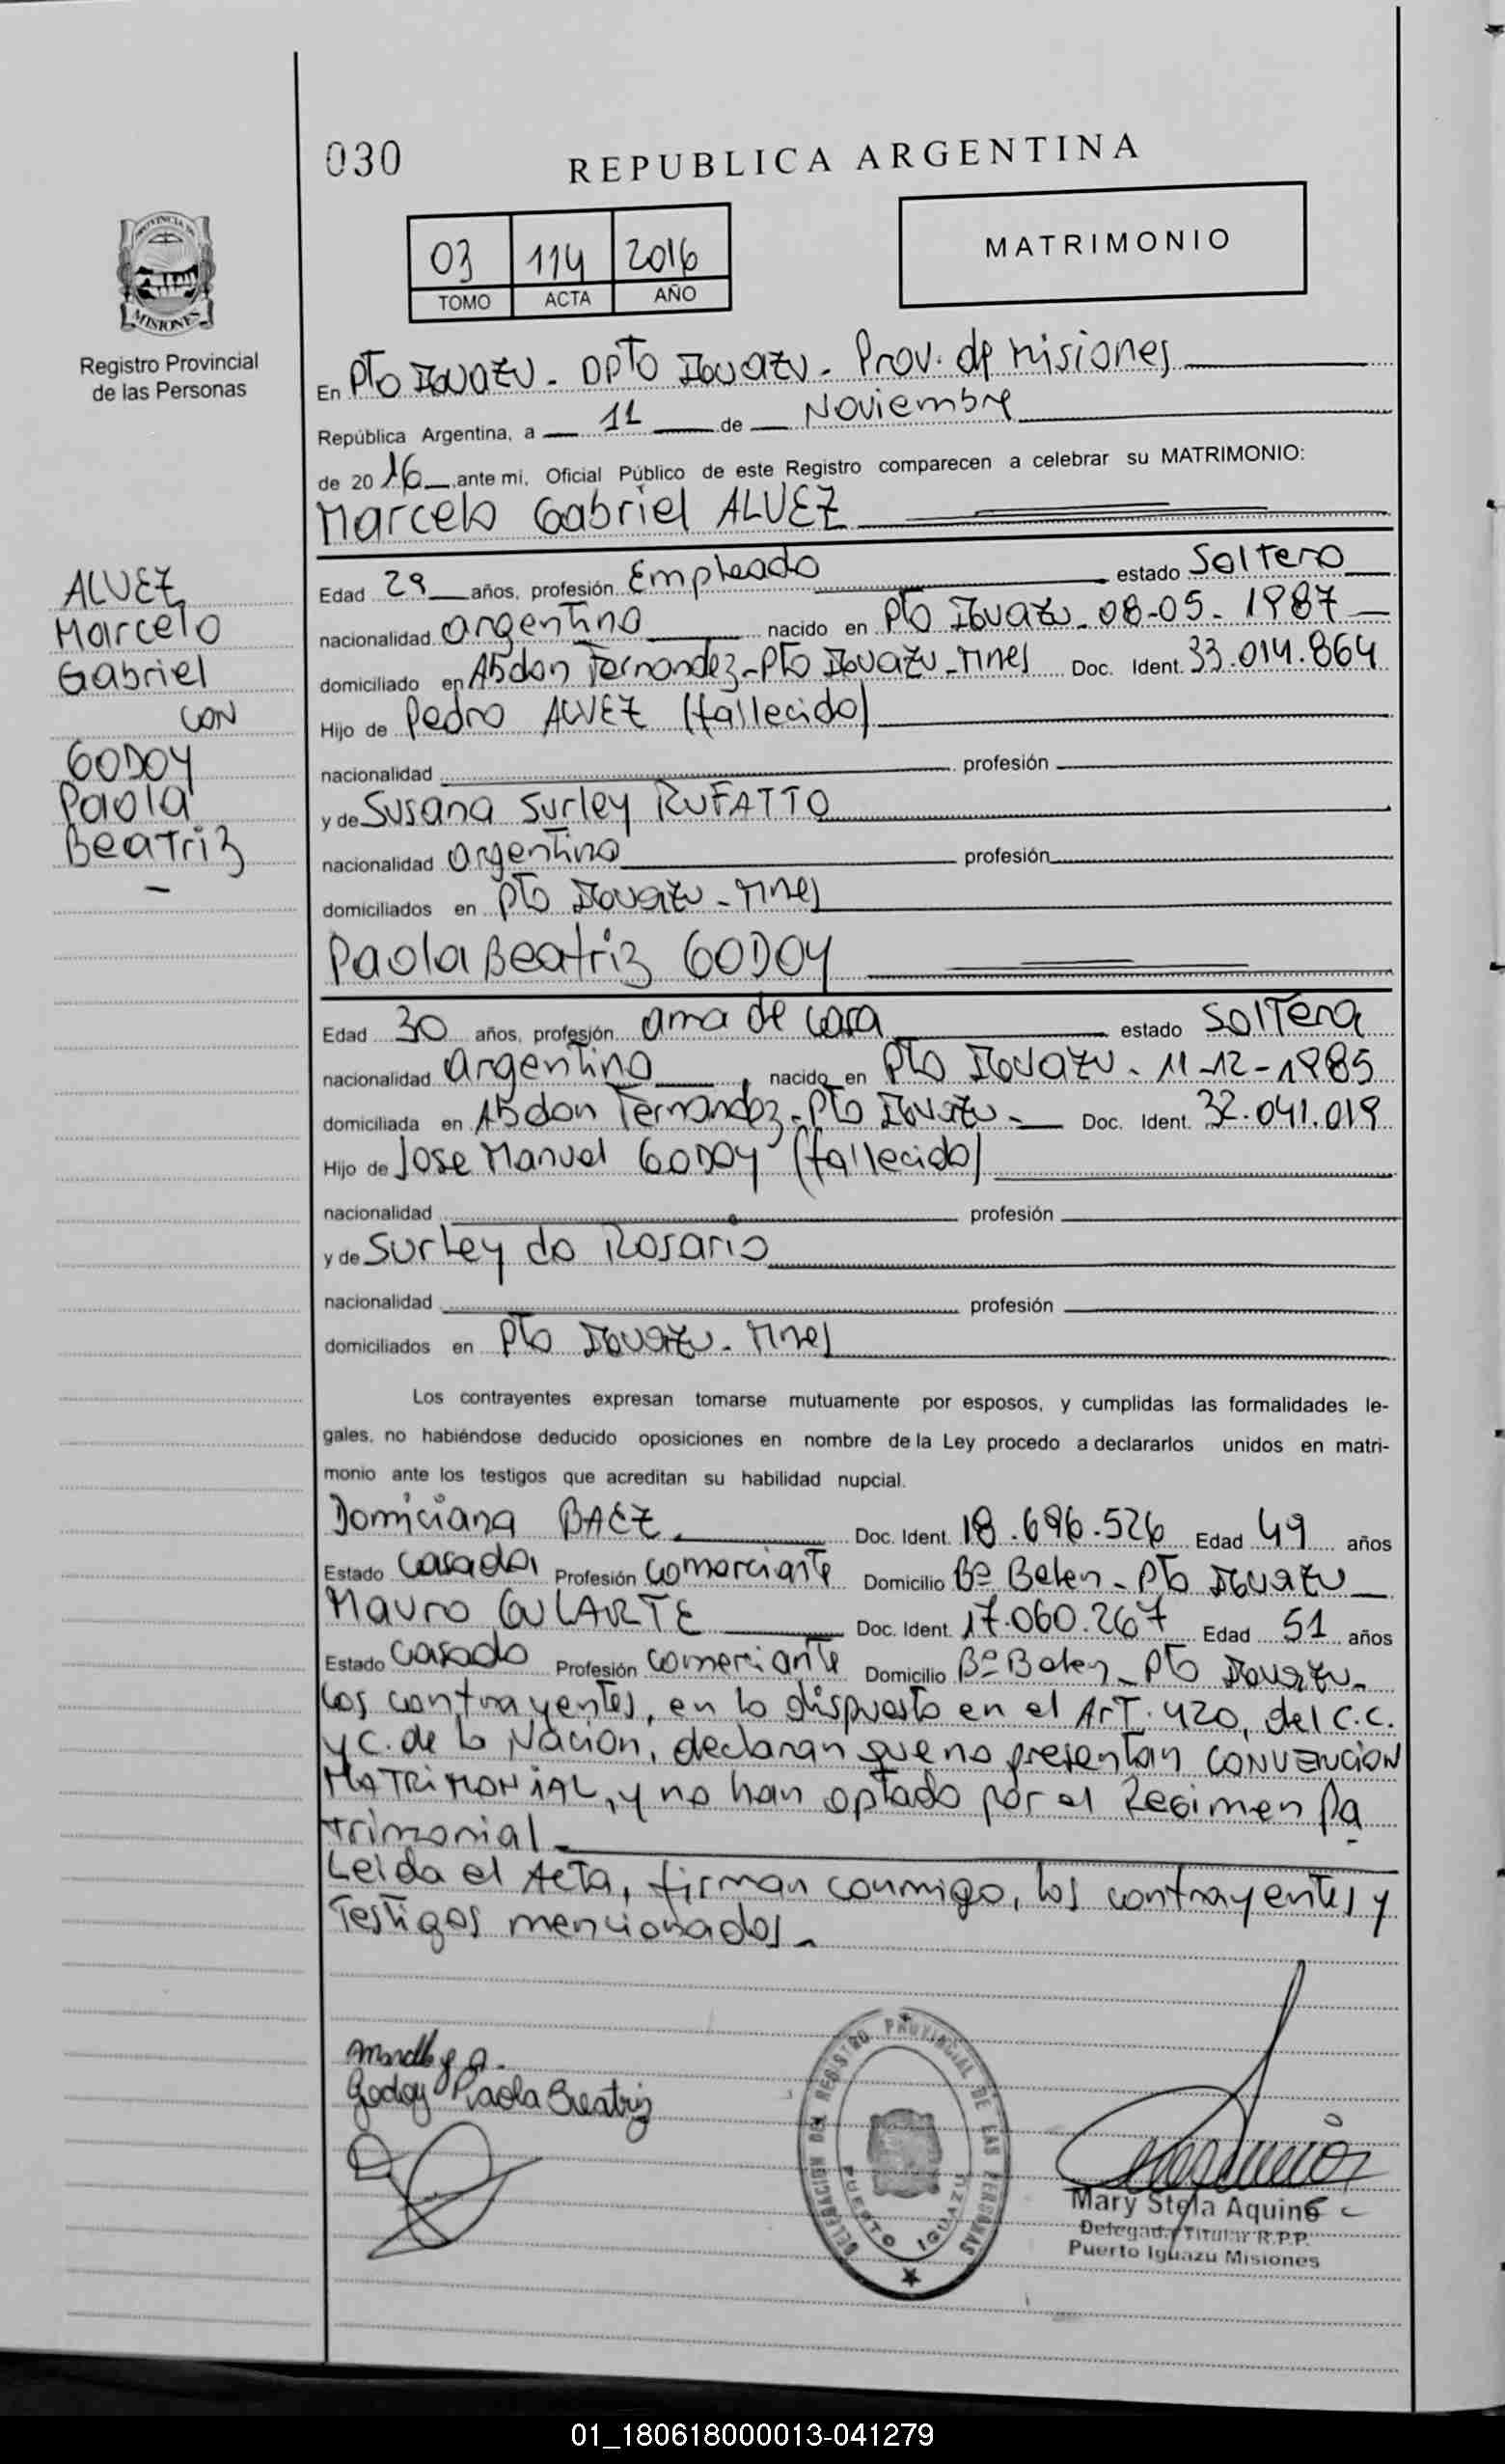 030
REPUBLICA ARGENTINA
03 114 2016
TOMO ACTA AÑO
MATRIMONIO
PROVINCIA DE
MISIONES
Registro Provincial
de las Personas
En Pto Iguazu - Dpto Iguazu - Prov. de Misiones
República Argentina, a 11 de Noviembre
de 2016 ante mi, Oficial Público de este Registro comparecen a celebrar su MATRIMONIO:
Marcelo Gabriel ALVEZ
ALVEZ
Marcelo
Gabriel
con
GODOY
Paola
Beatriz
Edad 29 años, profesión Empleado estado Soltero
nacionalidad argentino nacido en Pto Iguazu - 08-05-1987
domiciliado en Abdon Fernandez - Pto Iguazu - Mnes Doc. Ident. 33.014.864
Hijo de Pedro ALVEZ (fallecido)
nacionalidad profesión
y de Susana Surley RUFATTO
nacionalidad argentina profesión
domiciliados en Pto Iguazu - Mnes
Paola Beatriz GODOY
Edad 30 años, profesión ama de casa estado Soltera
nacionalidad argentina, nacido en Pto Iguazu - 11-12-1985
domiciliada en Abdon Fernandez - Pto Iguazu - Doc. Ident. 32.041.019
Hijo de Jose Manuel GODOY (fallecido)
nacionalidad profesión
y de Surley do Rosario
nacionalidad profesión
domiciliados en Pto Iguazu - Mnes
Los contrayentes expresan tomarse mutuamente por esposos, y cumplidas las formalidades le-
gales, no habiéndose deducido oposiciones en nombre de la Ley procedo a declararlos unidos en matri-
monio ante los testigos que acreditan su habilidad nupcial.
Domiciana BAEZ Doc. Ident. 18.696.526 Edad 49 años
Estado casada Profesión comerciante Domicilio Bº Belen - Pto Iguazu
Mauro GULARTE Doc. Ident. 17.060.267 Edad 51 años
Estado casado Profesión comerciante Domicilio Bº Belen - Pto Iguazu -
Los contrayentes, en lo dispuesto en el Art. 420, del C.C.
y C. de la Nación, declaran que no presentan CONVENCION
MATRIMONIAL, y no han optado por el Regimen Pa
trimonial -
Leida el Acta, firman conmigo, los contrayentes y
Testigos mencionados -
Godoy Paola Beatriz
DELEGACION DEL REGISTRO PROVINCIAL DE LAS PERSONAS
PUERTO IGUAZU
Mary Stela Aquino
Delegada Titular R.P.P.
Puerto Iguazu Misiones
01_180618000013-041279